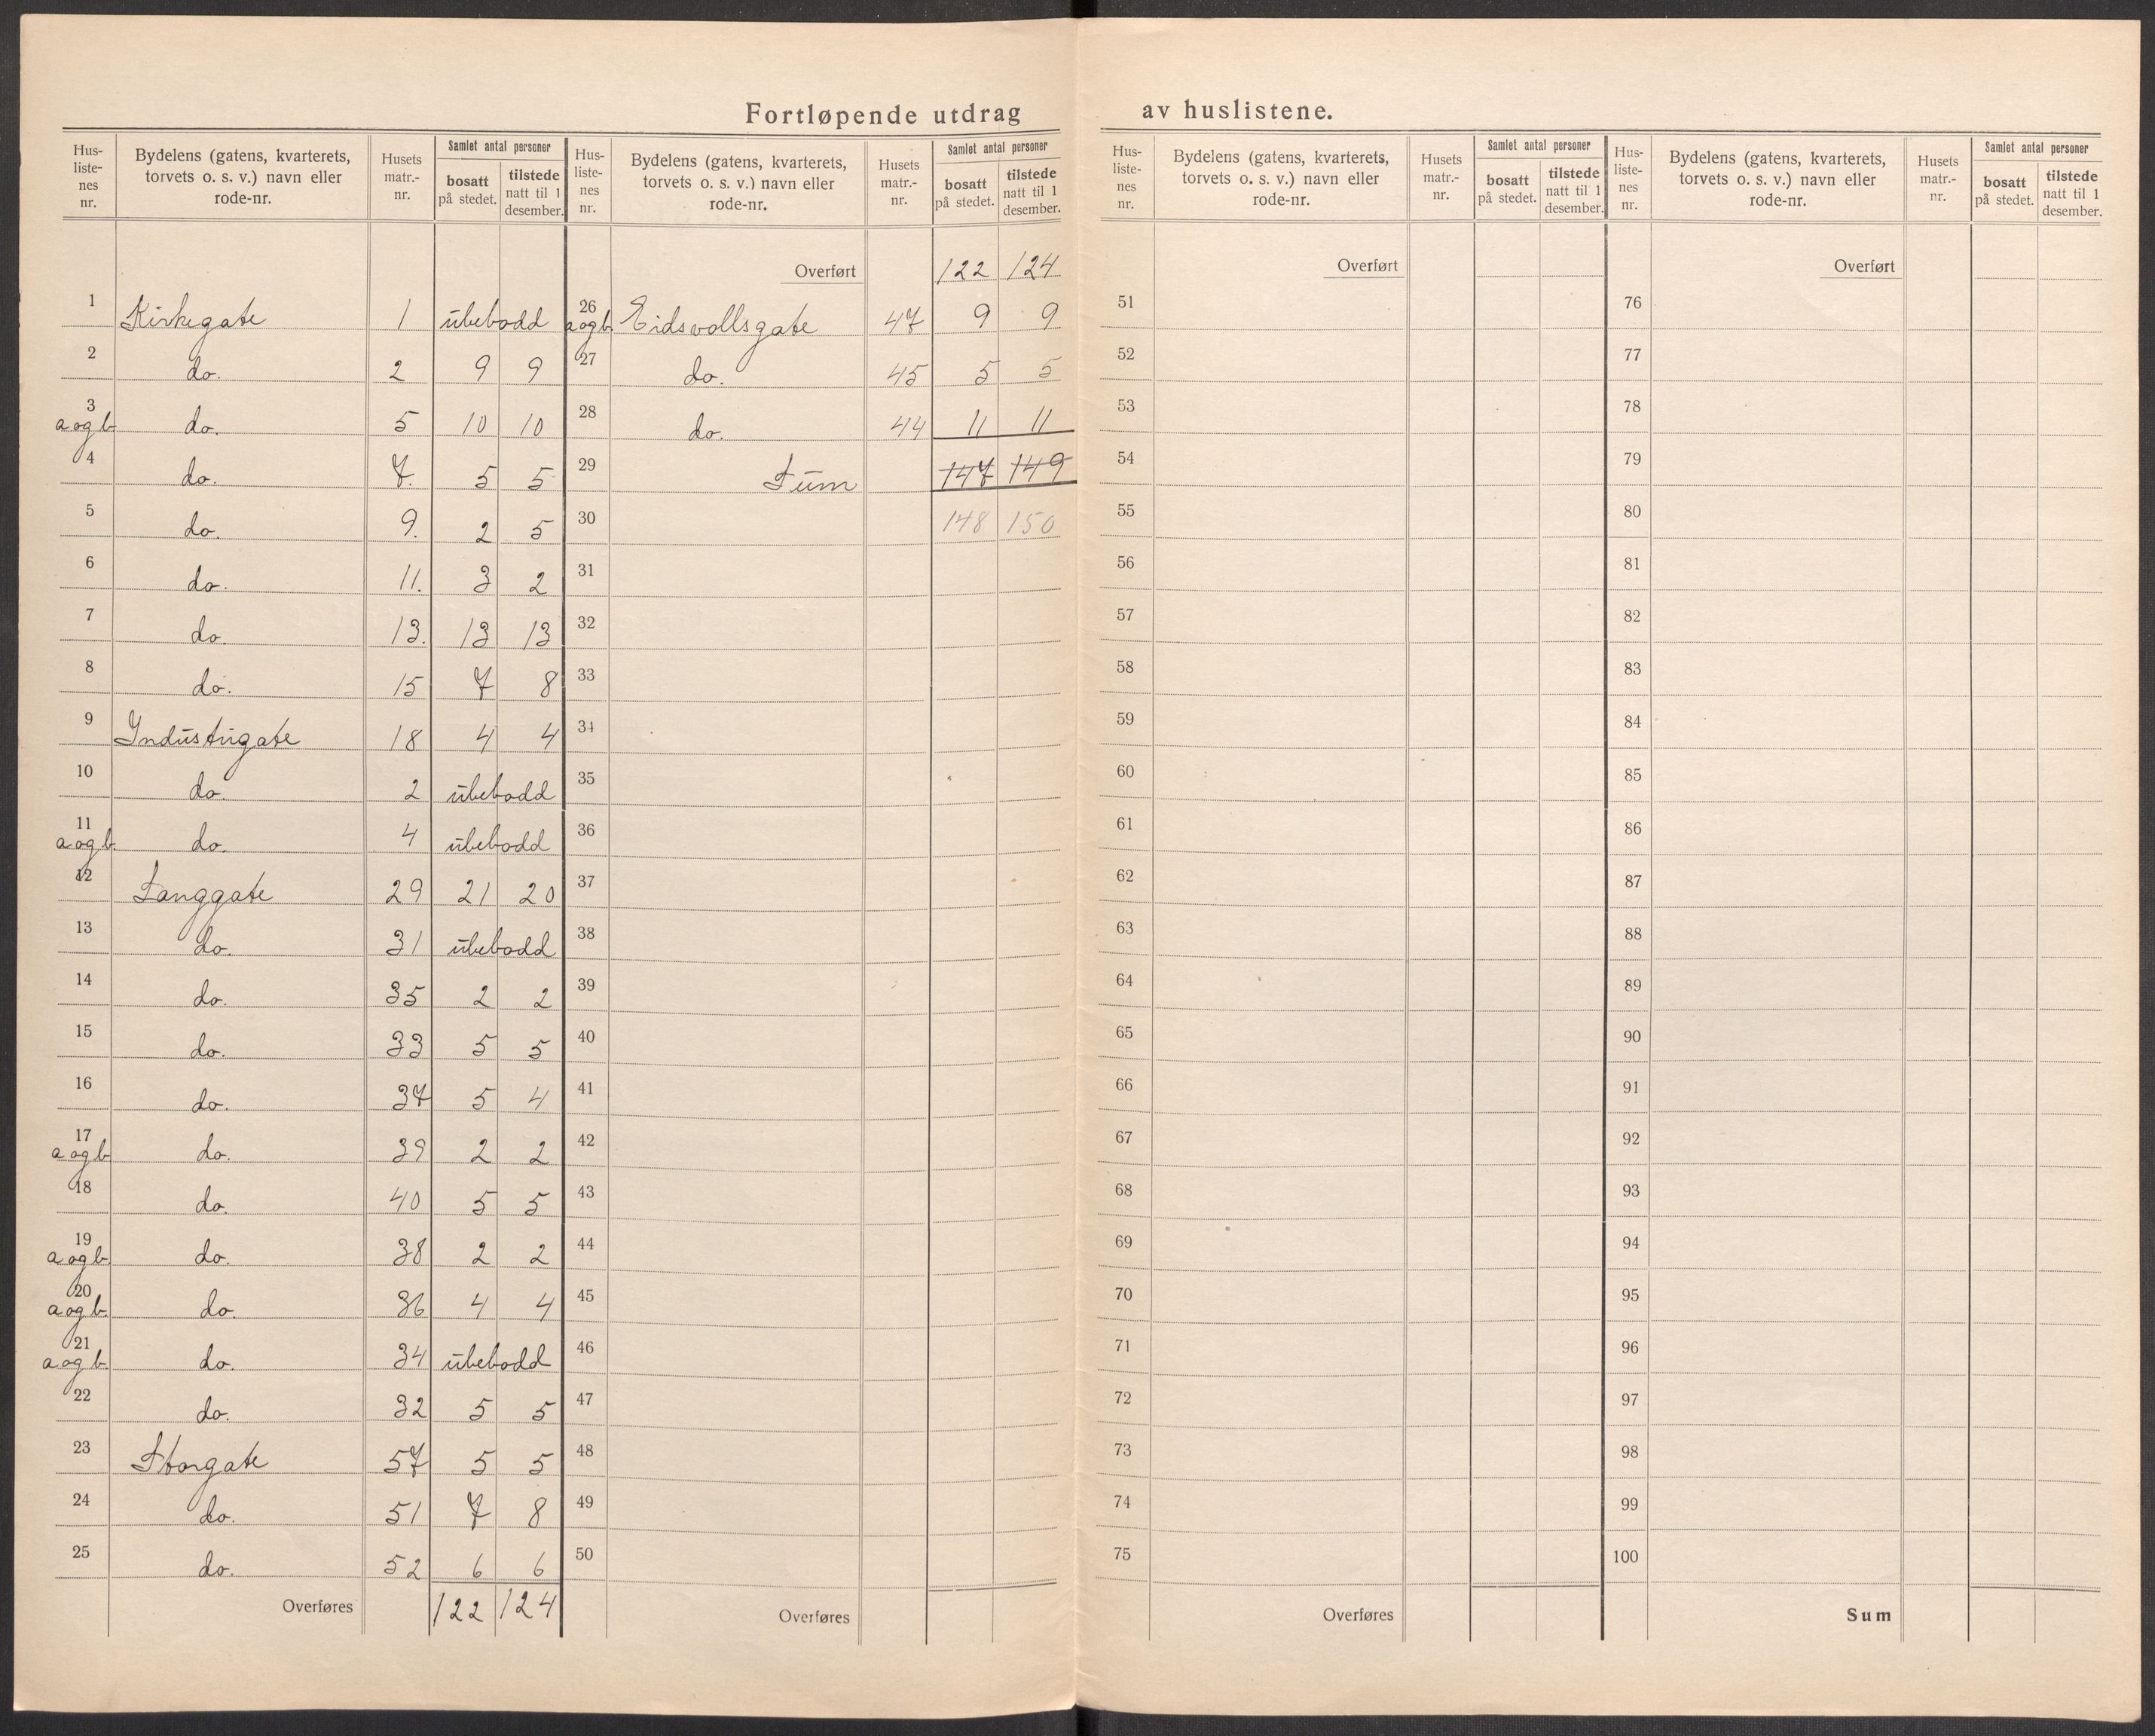 Fortløpende utdrag av huslistene.
Hus-listenes nr. | Bydelens (gatens, kvarterets, torvets o. s. v.) navn eller rode-nr. | Husets matr.-nr. | Samlet antal personer | bosatt på stedet. | tilstede natt til 1 desember.
1 Kirkegate 1 ubebodd
2 do. 2 9 9
3 a og b do. 5 10 10
4 do. 7. 5 5
5 do. 9. 2 5
6 do. 11. 3 2
7 do. 13. 13 13
8 do. 15 7 8
9 Industrigate 18 4 4
10 do. 2 ubebodd
11 a og b. do. 4 ubebodd
12 Langgate 29 21 20
13 do. 31 ubebodd
14 do. 35 2 2
15 do. 33 5 5
16 do. 37 5 4
17 a og b do. 39 2 2
18 do. 40 5 5
19 a og b do. 38 2 2
20 a og b. do. 36 4 4
21 a og b. do. 34 ubebodd
22 do. 32 5 5
23 Storgate 57 5 5
24 do. 51 7 8
25 do. 52 6 6
Overføres 122 124
Hus-listenes nr. | Bydelens (gatens, kvarterets, torvets o. s. v.) navn eller rode-nr. | Husets matr.-nr. | Samlet antal personer | bosatt på stedet. | tilstede natt til 1 desember.
Overført 122 124
26 a og b. Eidsvollsgate 47 9 9
27 do. 45 5 5
28 do. 44 11 11
29 Sum 147 149
30 148 150
31
32
33
34
35
36
37
38
39
40
41
42
43
44
45
46
47
48
49
50
Overføres
Hus-listenes nr. | Bydelens (gatens, kvarterets, torvets o. s. v.) navn eller rode-nr. | Husets matr.-nr. | Samlet antal personer | bosatt på stedet. | tilstede natt til 1 desember.
Overført
51
52
53
54
55
56
57
58
59
60
61
62
63
64
65
66
67
68
69
70
71
72
73
74
75
Overføres
Hus-listenes nr. | Bydelens (gatens, kvarterets, torvets o. s. v.) navn eller rode-nr. | Husets matr.-nr. | Samlet antal personer | bosatt på stedet. | tilstede natt til 1 desember.
Overført
76
77
78
79
80
81
82
83
84
85
86
87
88
89
90
91
92
93
94
95
96
97
98
99
100
Sum